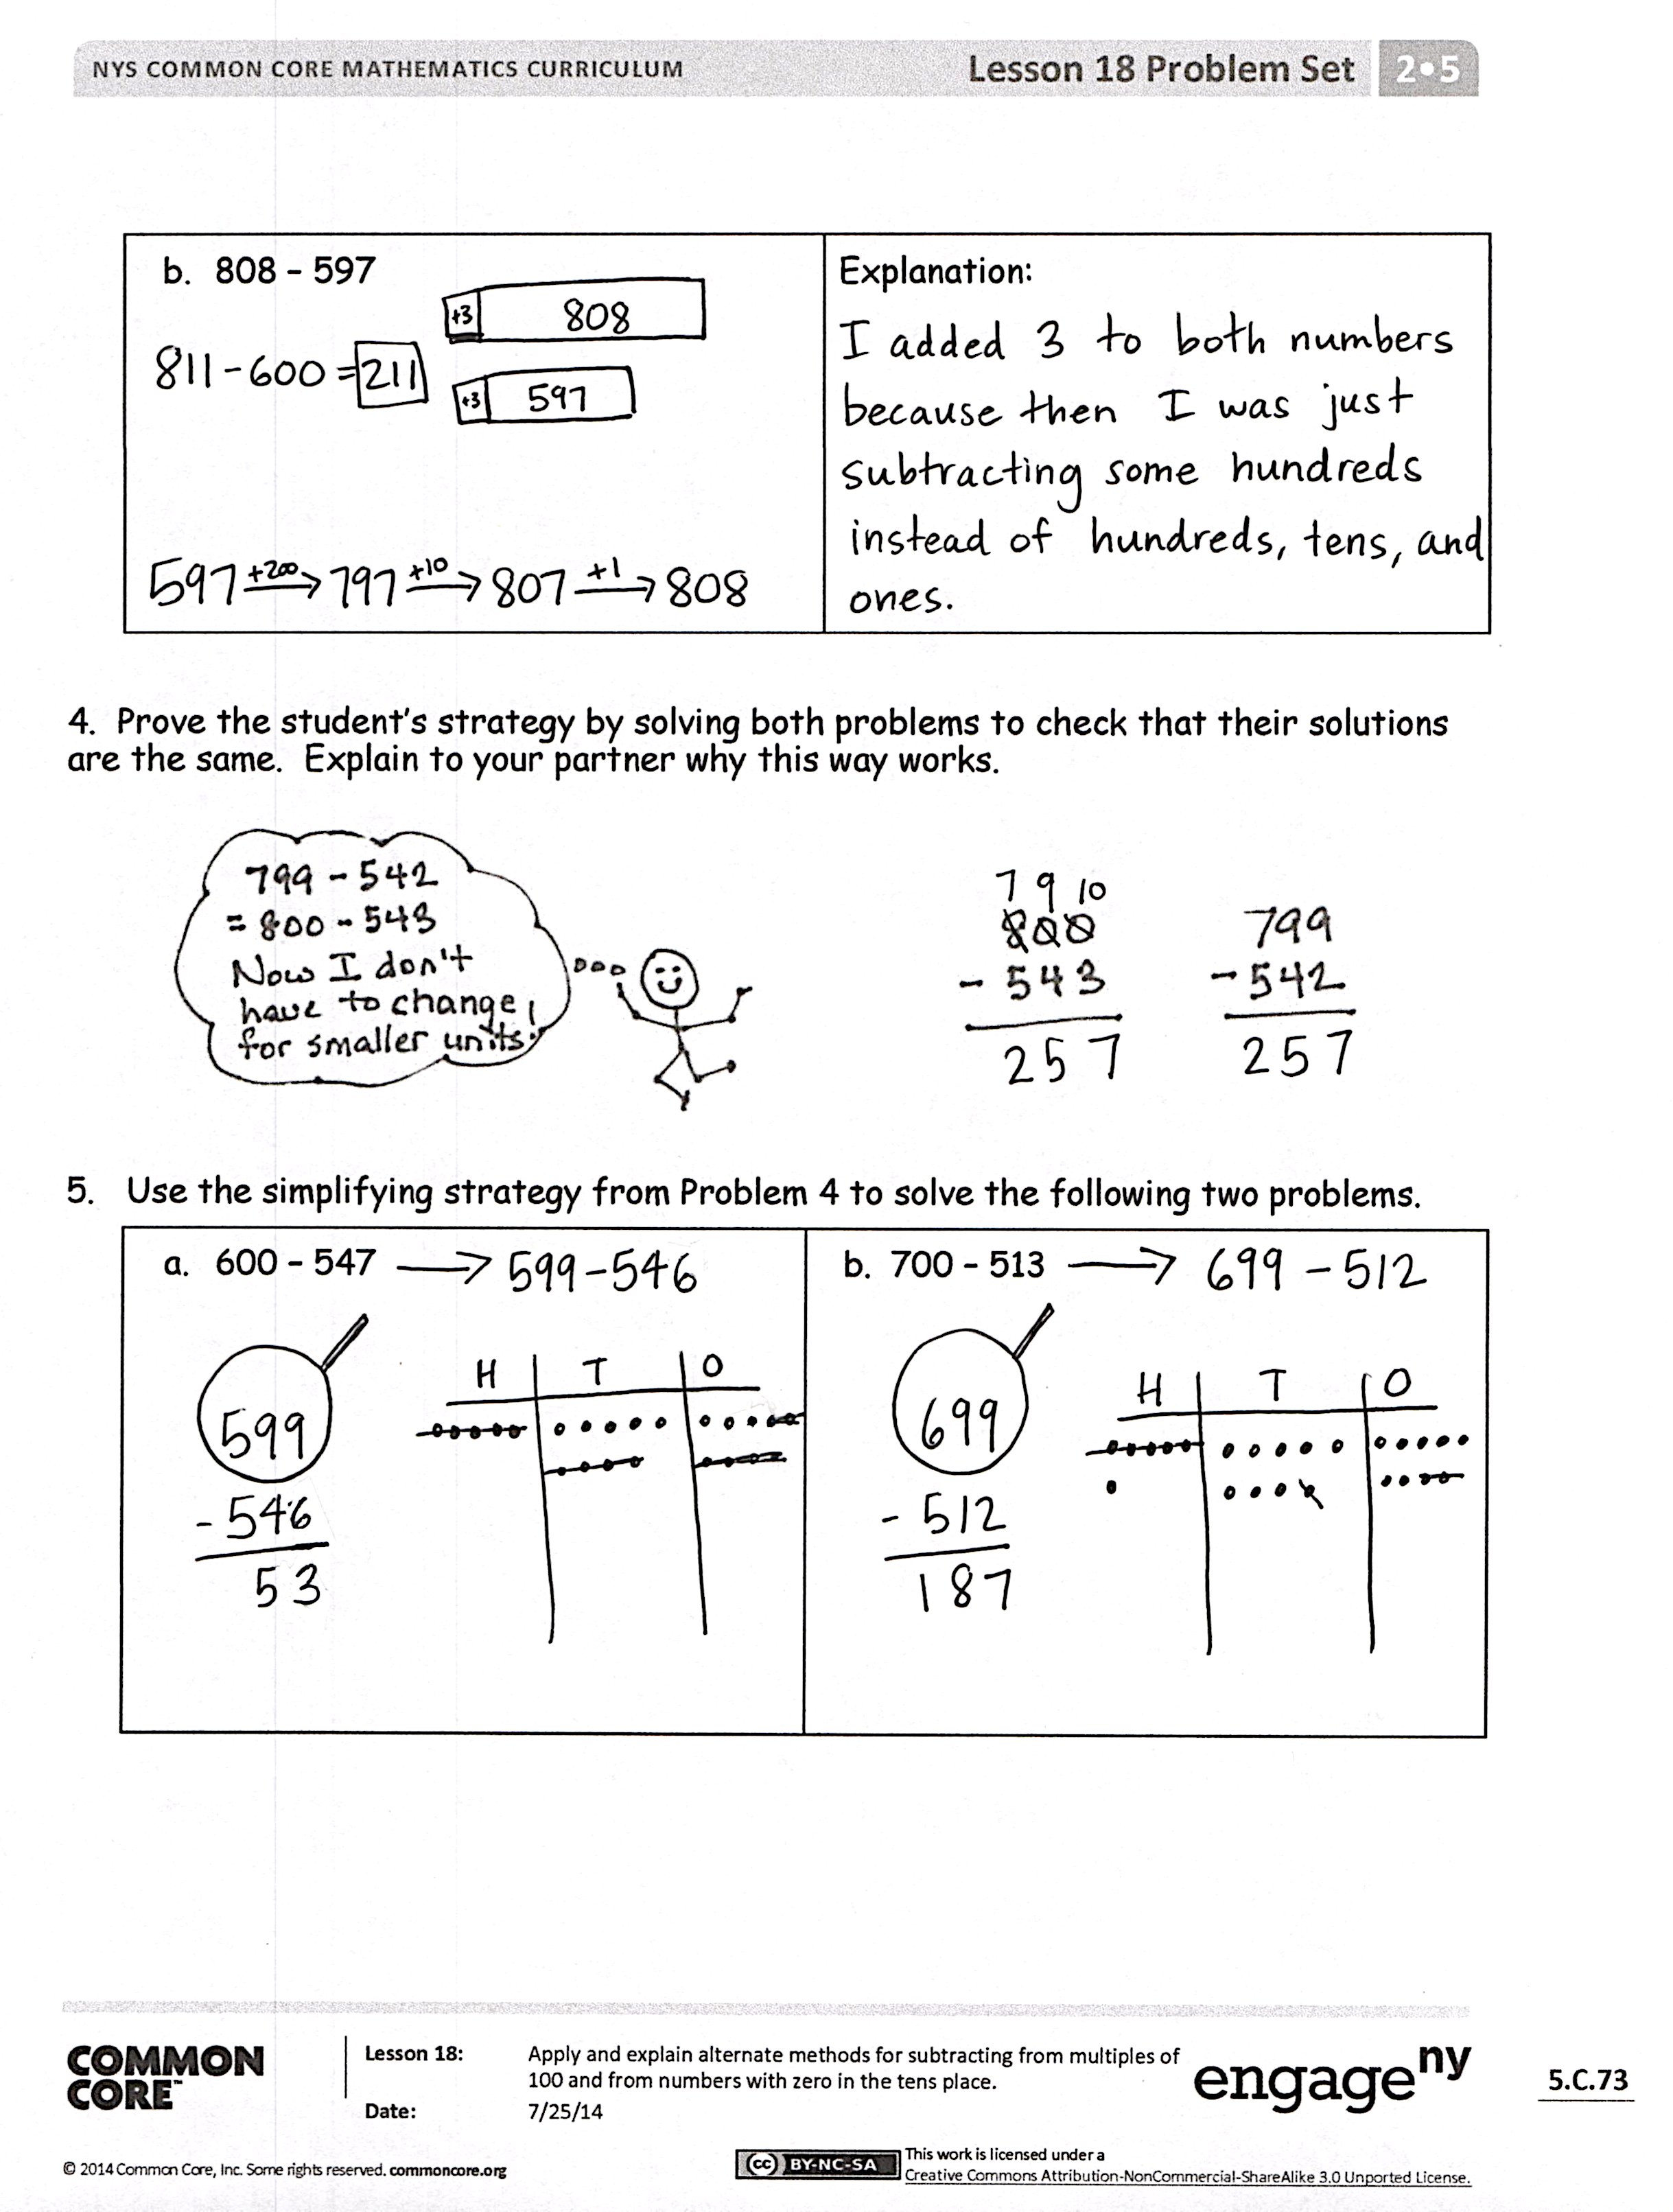 NYS COMMON CORE MATHEMATICS CURRICULUM
Lesson 18 Problem Set 2•5
b. 808 - 597
+3 808
811-600=211
+3 597
597 +200→ 797 +10→ 807 +1→ 808
Explanation:
I added 3 to both numbers
because then I was just
subtracting some hundreds
instead of hundreds, tens, and
ones.
4. Prove the student's strategy by solving both problems to check that their solutions
are the same. Explain to your partner why this way works.
799 - 542
= 800 - 543
Now I don't
have to change
for smaller units!
7 9 10
800
- 543
257
799
- 542
257
5. Use the simplifying strategy from Problem 4 to solve the following two problems.
a. 600 - 547 → 599-546
H T O
599
- 546
53
b. 700 - 513 → 699 - 512
H T O
699
- 512
187
COMMON
CORE™
Lesson 18:
Apply and explain alternate methods for subtracting from multiples of
100 and from numbers with zero in the tens place.
Date:
7/25/14
engage ny
5.C.73
© 2014 Common Core, Inc. Some rights reserved. commoncore.org
cc BY-NC-SA
This work is licensed under a
Creative Commons Attribution-NonCommercial-ShareAlike 3.0 Unported License.